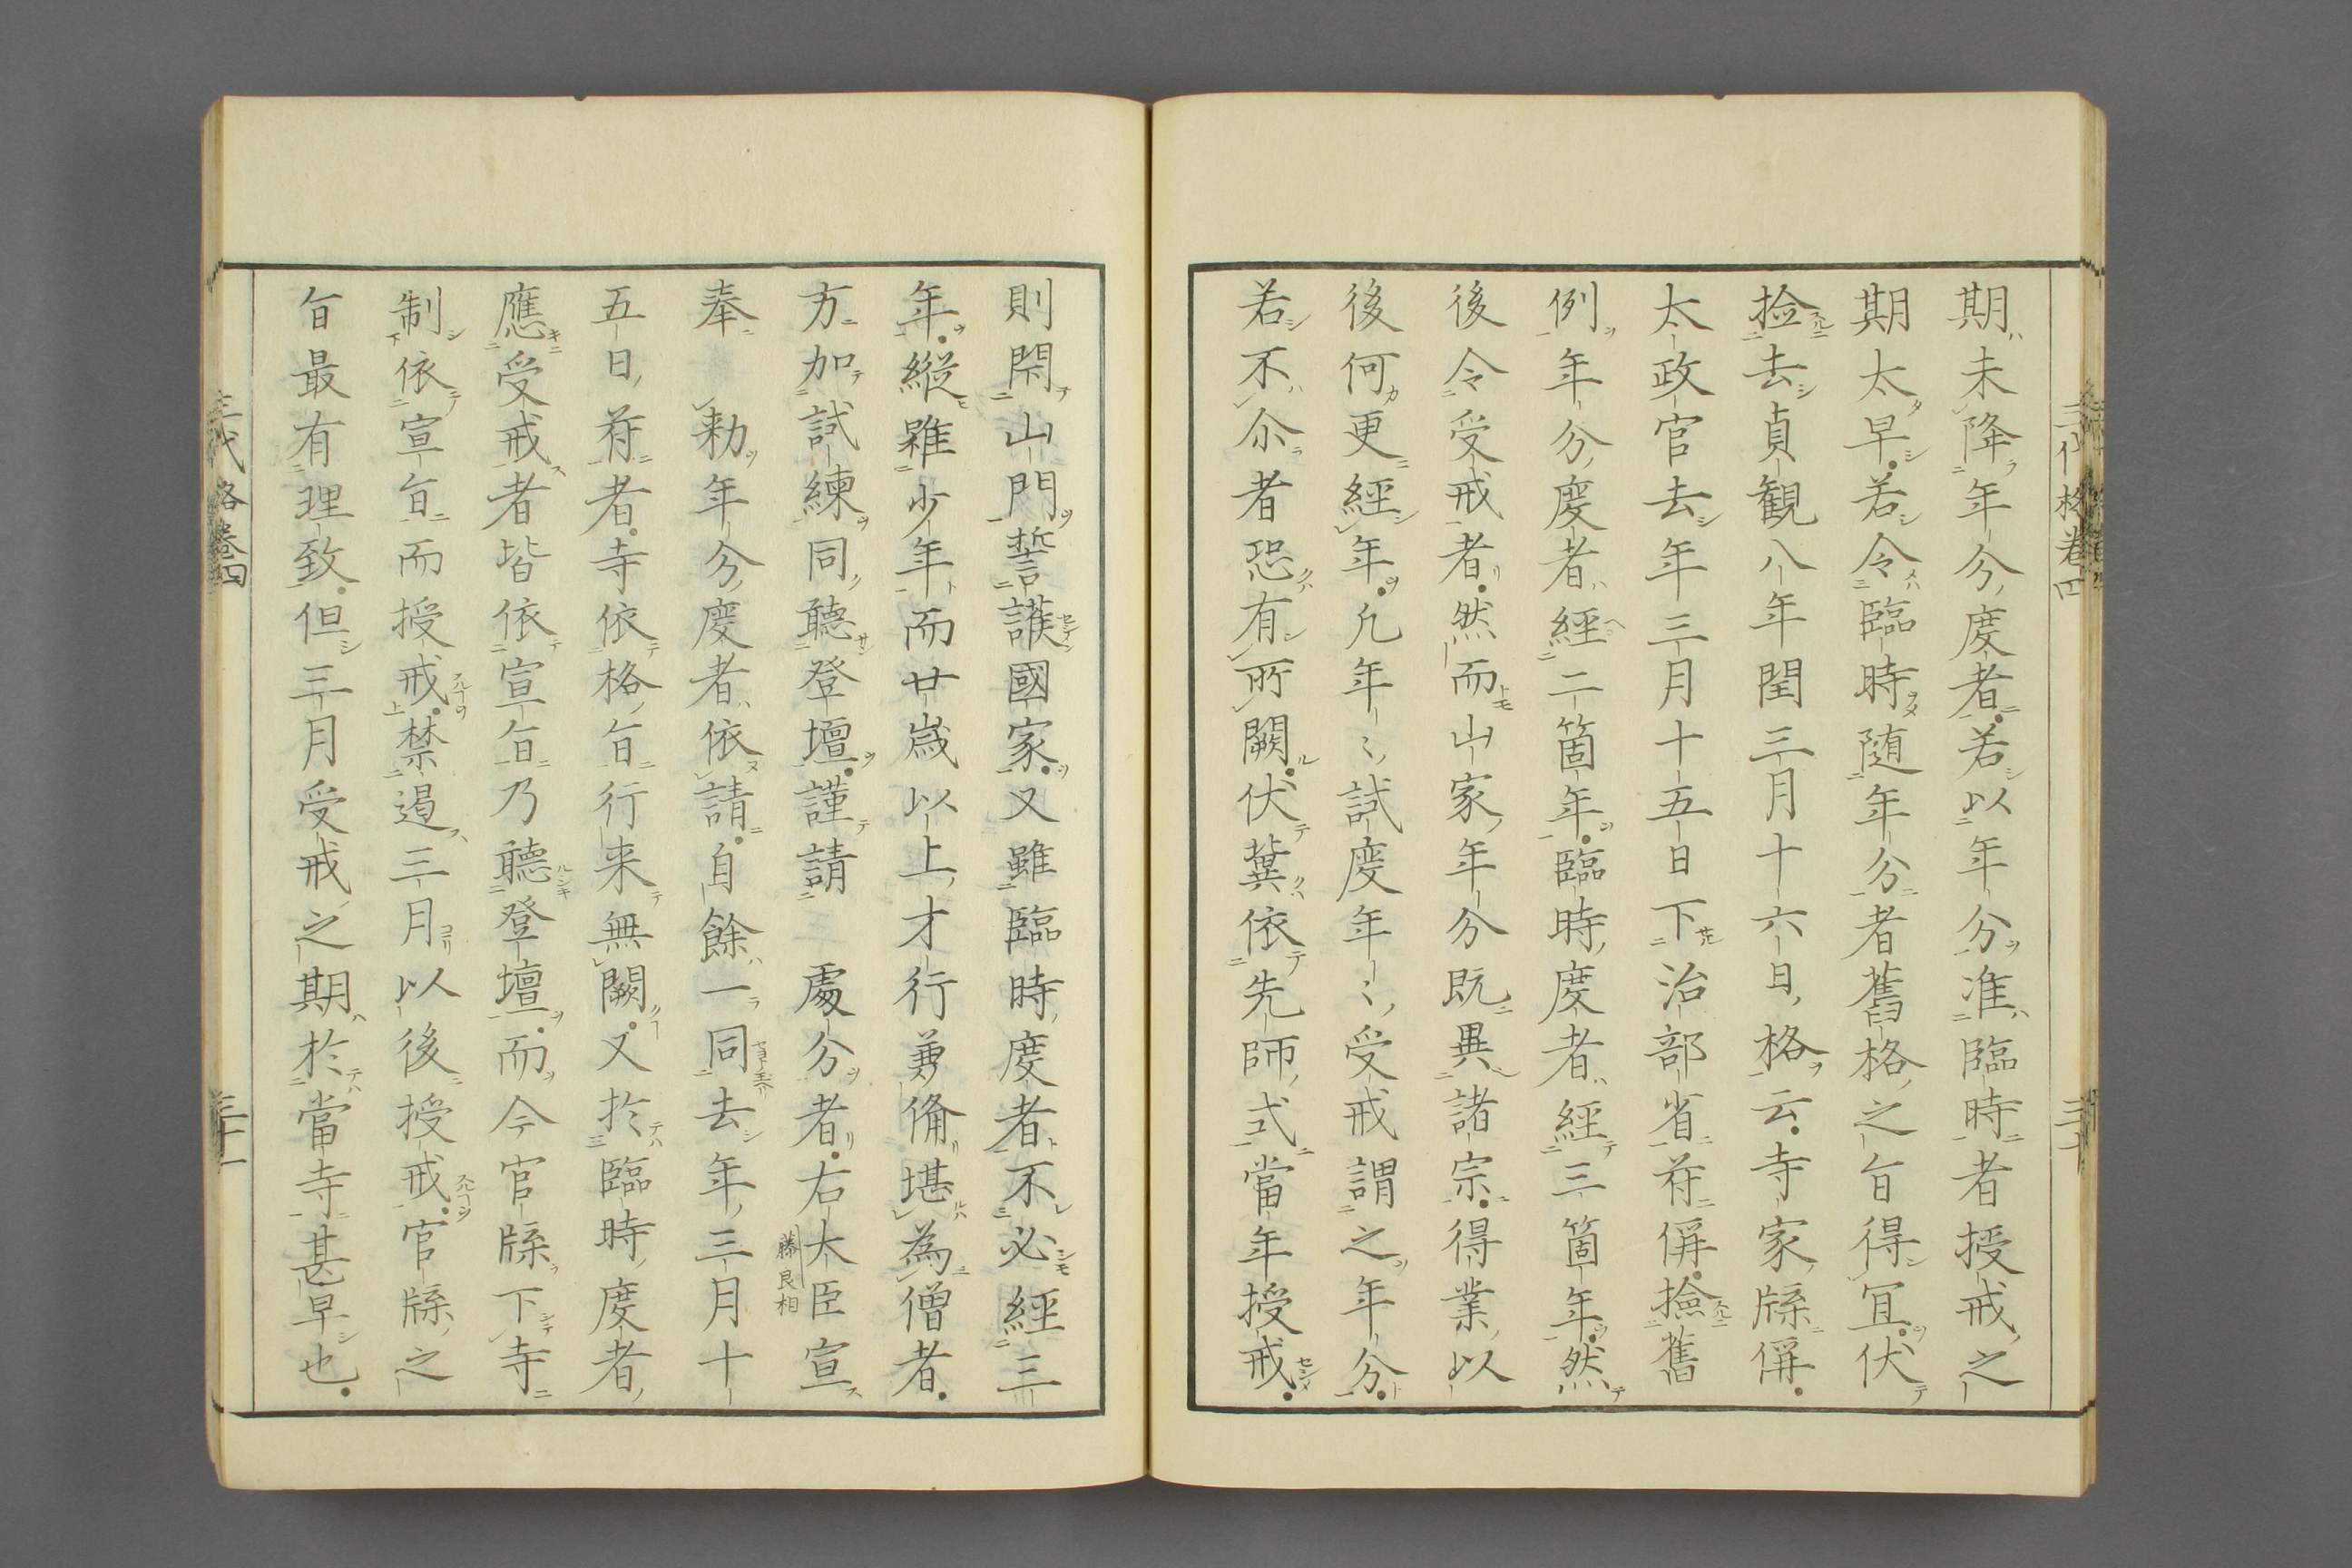 三代格卷四
三十
期未降年分度者若以年分准臨時者授戒之
期太早若令臨時随年分者舊格之㫖得冝伏
撿去貞観八年閏三月十六日格云寺家牒偁
太政官去年三月十五日下治部省苻偁撿舊
例年分度者經二箇年臨時度者經三箇年然
後令受戒者然而山家年分既異諸宗得業以
後何更經年凢年〻試度年〻受戒謂之年分
若不尒者恐有所闕伏冀依先師式當年授戒
則閇山門誓護國家又雖臨時度者不必經三
年縱雖少年而廿嵗以上才行兼備堪為僧者
方加試練同聽登壇謹請處分者右大臣宣
藤良相
奉勑年分度者依請自餘一同去年三月十
五日苻者寺依格㫖行来無闕又扵臨時度者
應受戒者皆依宣㫖乃聽登壇而今官牒下寺
制依宣㫖而授戒禁遏三月以後授戒官牒之
㫖最有理致但三月受戒之期扵當寺甚早也
三代格卷四
三十一